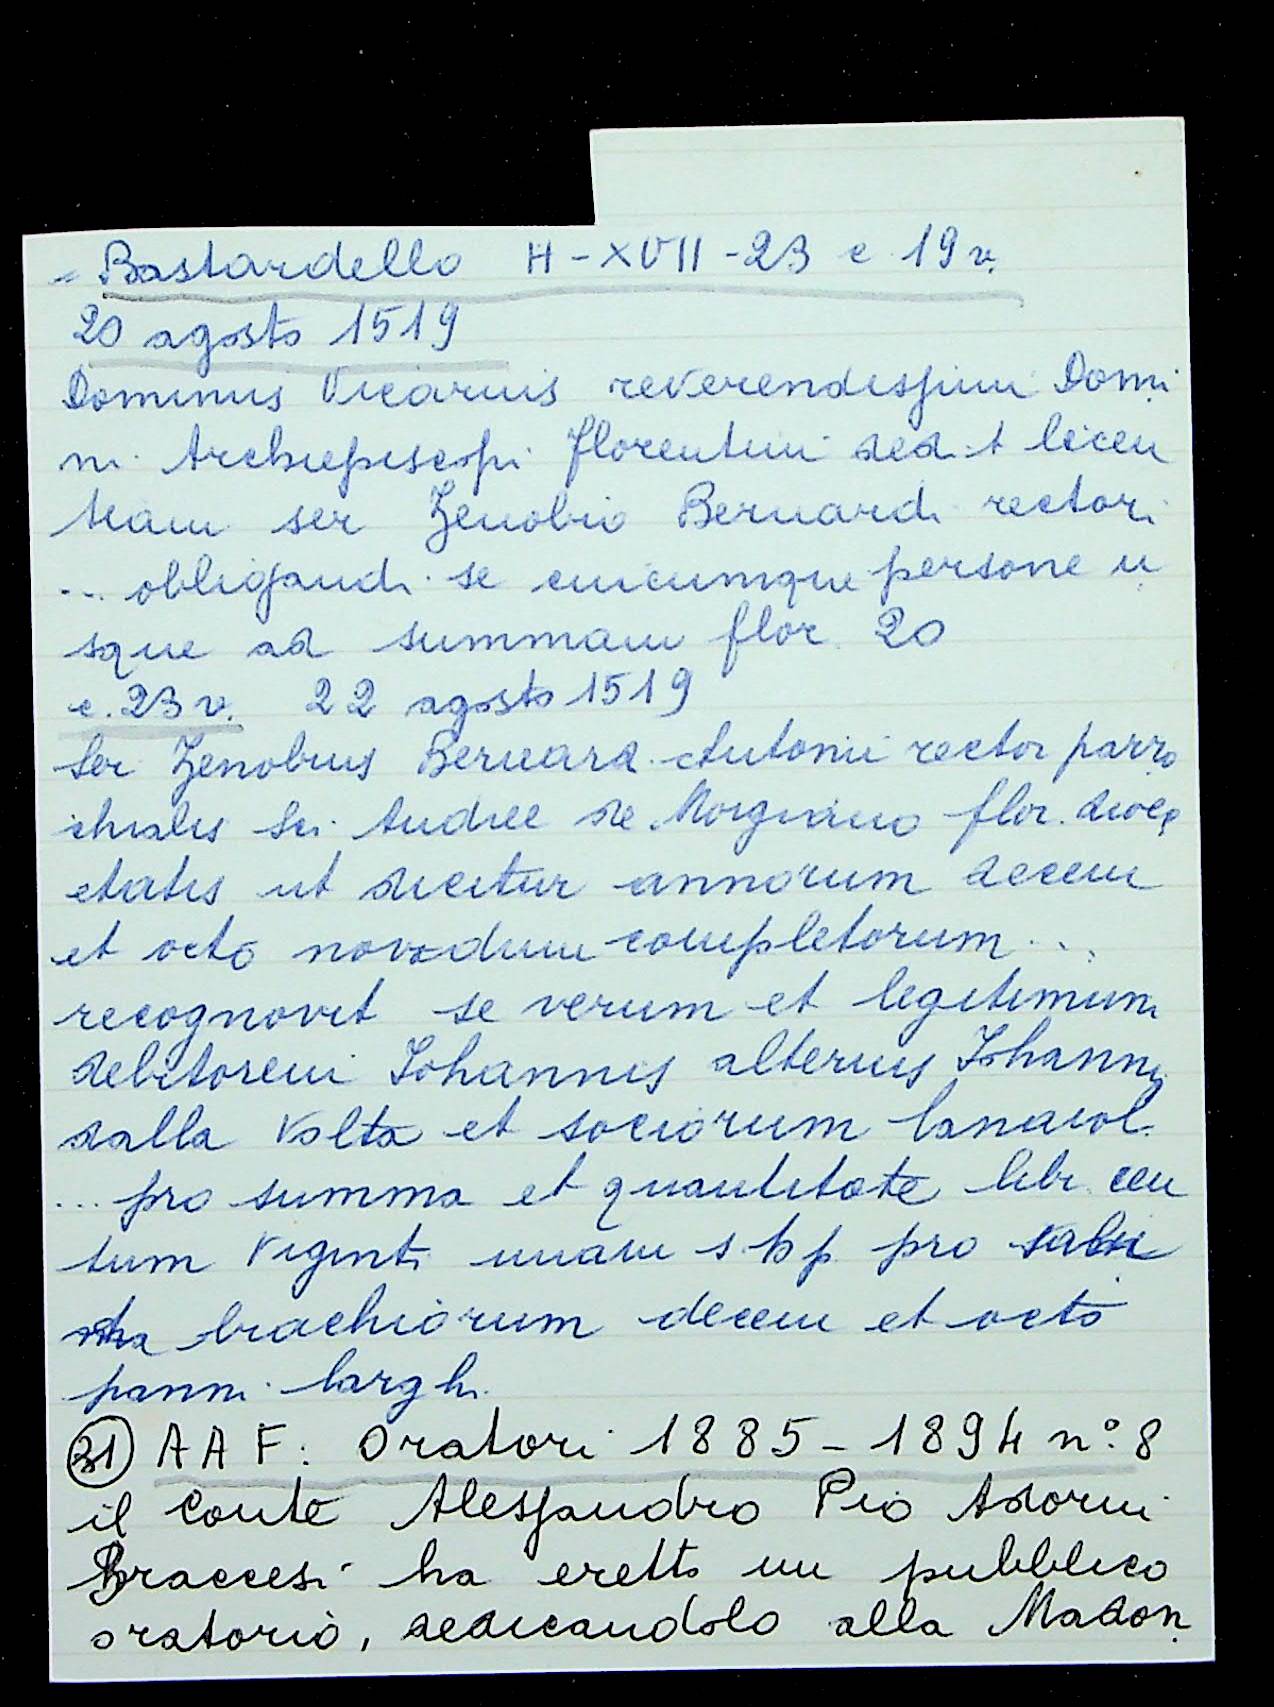 - Bastardello H-XVII-23 c 19 v.
20 agosto 1519
Dominus Vicarius reverendissimi Domi
ni Archiepiscopi florentini dedit licen
tiam ser Zenobio Bernardi rectori
... obligandi se cuicumque persone u
sque ad summam flor. 20
c. 23 v. 22 agosto 1519
Ser Zenobius Bernardi Antonii rector parro
chialis Sci. Andree de Morgiano flor. dioc
etatis ut dicitur annorum decem
et octo novodum completorum ...
recognovit se verum et legitimum
debitorem Iohannis alterius Iohannis
dalla Volta et sociorum lanaiol.
... pro summa et quantitate libr. cen
tum viginti unam s. b p pro
brachiorum decem et octo
panni larghi.
31 AAF: Oratori 1885-1894 n° 8
il Conte Alessandro Pio Adorni
Braccesi ha eretto un pubblico
oratorio, dedicandolo alla Madon